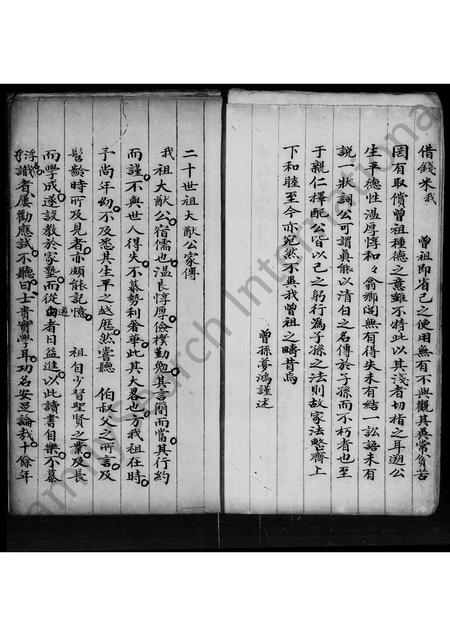 借錢米我 曾祖即省己之使用無有不與觀其異常負苦
罔有取償曾祖種德之意雖不特此以其淺者初指之耳溯公
生平德性溫厚惇和々翕鄉閭無有得失未有結一訟語未有
說一狀詞公可謂真能以清白之名傳於子孫而不朽者也至
于親仁擇配公皆以己之躬行為子孫之法則故家法整齊上
下和睦至今亦宛然不異我曾祖之疇昔焉
曾孫夢鴻謹述
二十世祖大猷公家傳
我 祖大猷公宿儒也溫良惇厚儉樸勤勉其言簡而當其行約
而謹不與世人得失不慕勢利奢華此其大畧也方我祖在時
予尚年幼不及悉其生平之越歷然嘗聽 伯叔父之所言及
髫齡時所及見者亦頗能記憶 祖自少習聖賢之業及長
而學成遂設教於家塾而從遊者日益進以此讀書自樂不慕
浮識者屢勸應試不聽曰士貴實學耳功名安足論哉十餘年
FamilySearch International